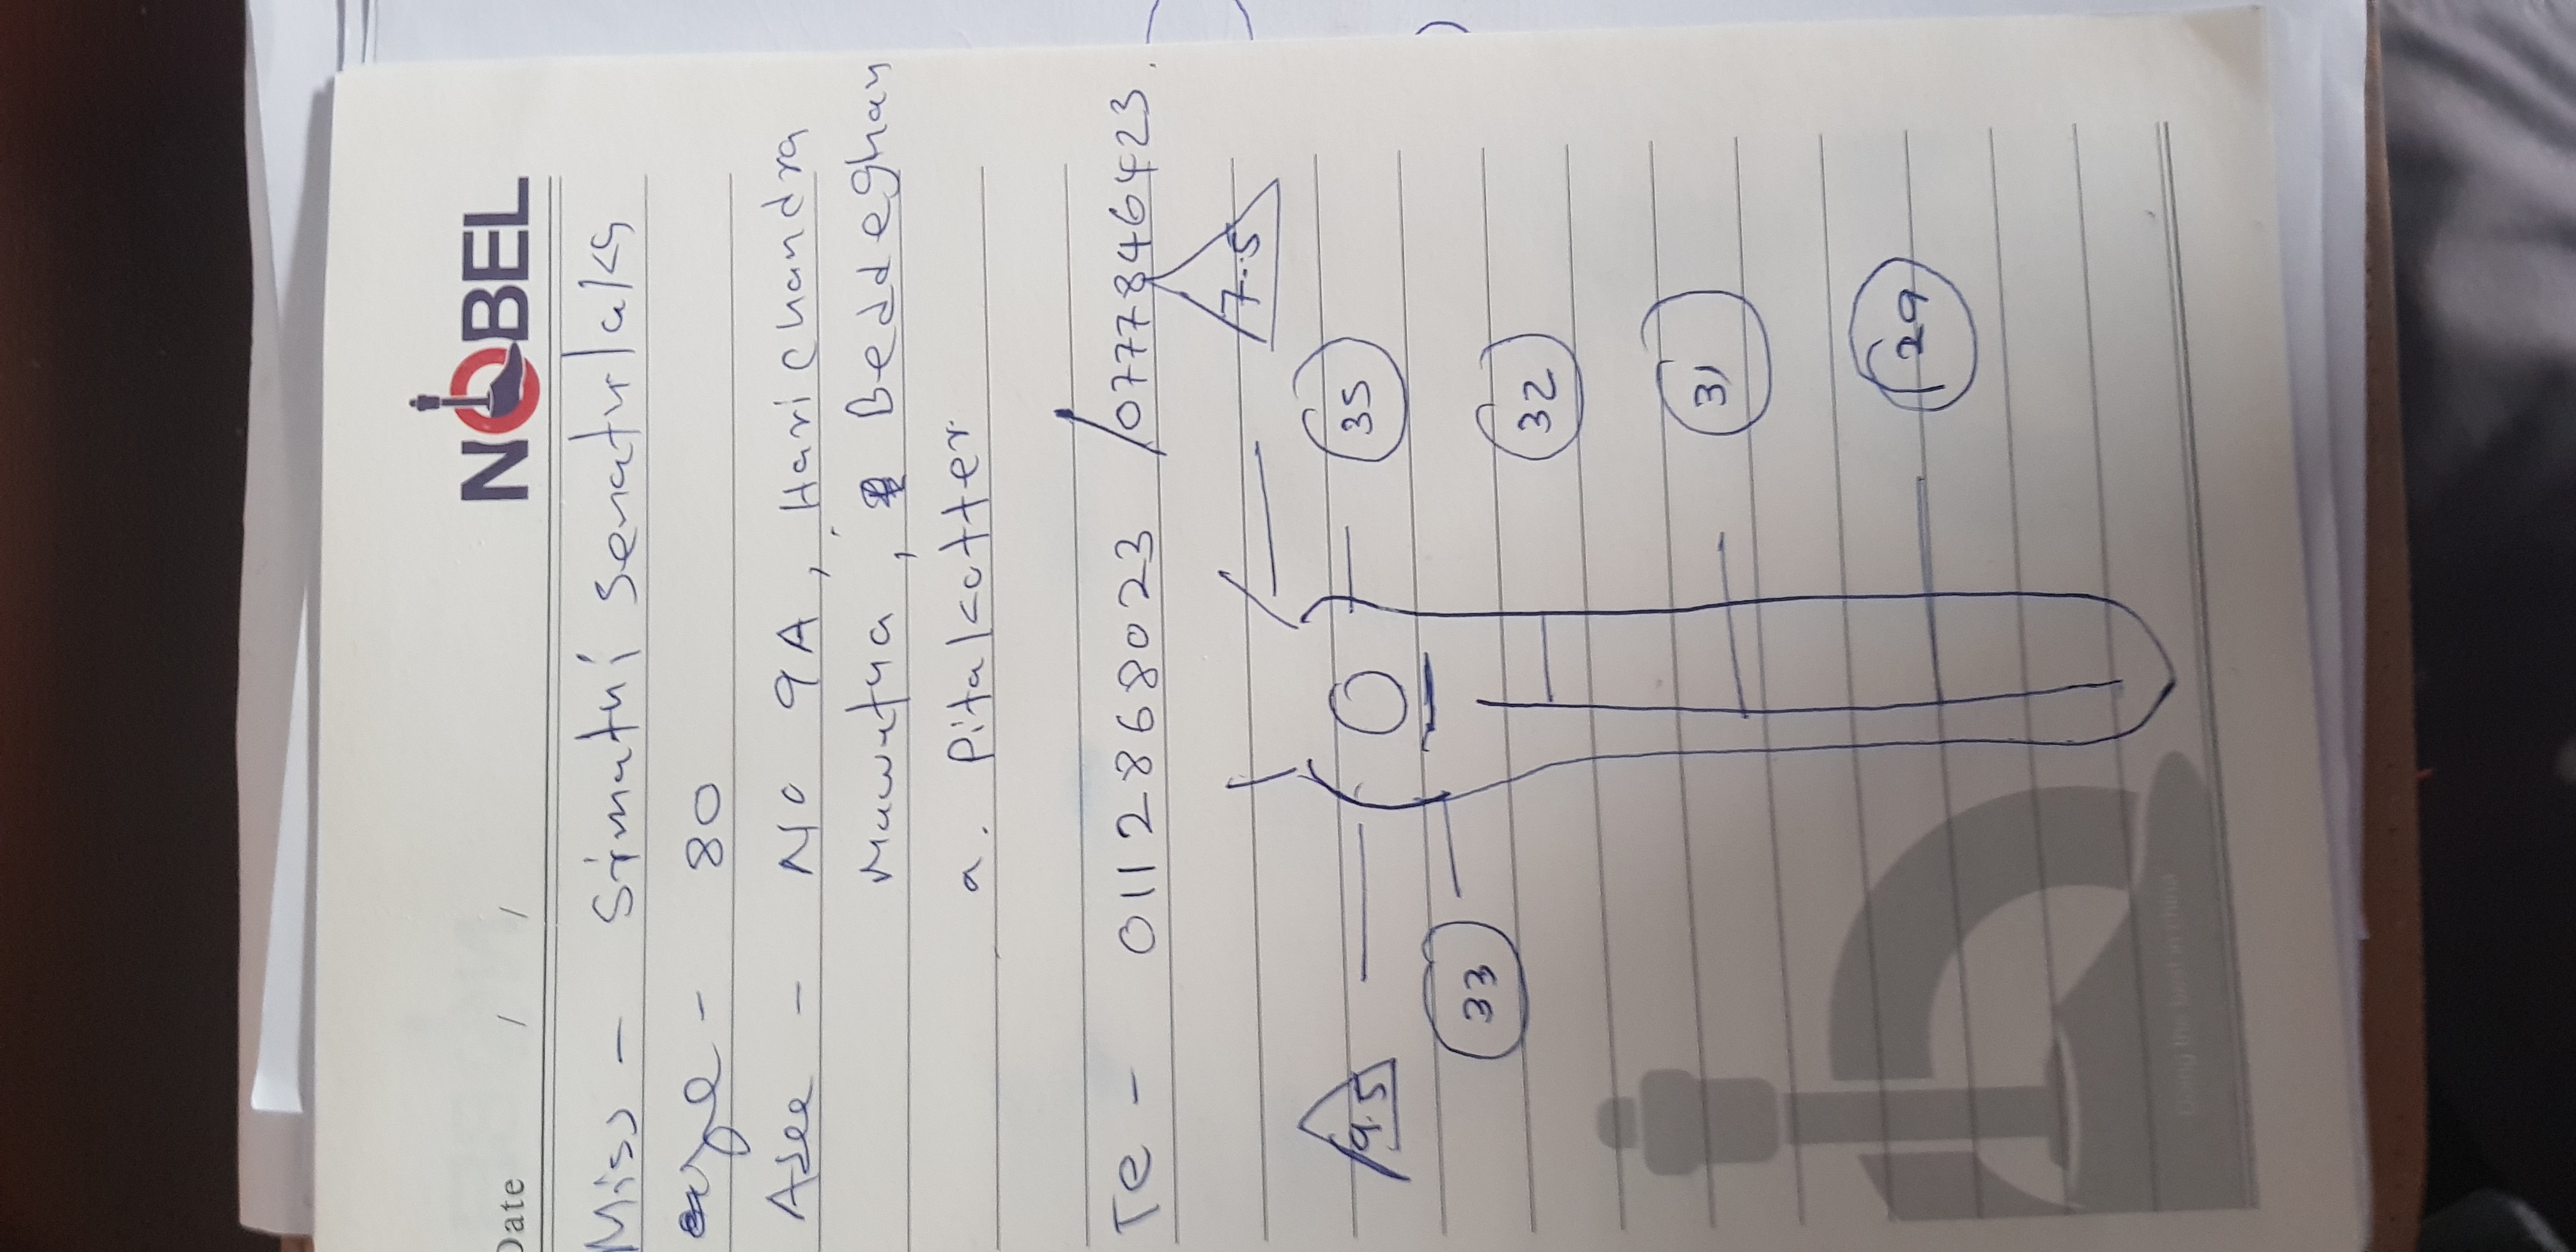 NOBEL
Date / /
Miss - Srimathi Senaturlaks
age - 80
No 9A, Harichandra
Mawatha, Beddeghan
a. Pitalkotter
Te - 0112868023 / 0777846423.
7.5
9.5
35
33
32
31
29
Doing the best in china